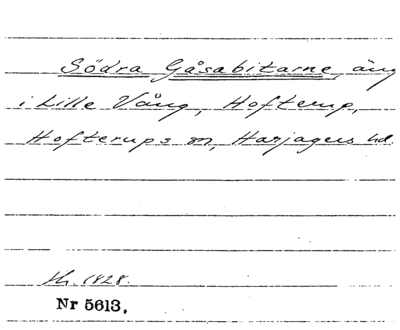 Södra Gåsabitarne, äng
i Lille Vång, Hofterup,
Hofterups sn, Harjagers hd.
1828.
Nr 5613.